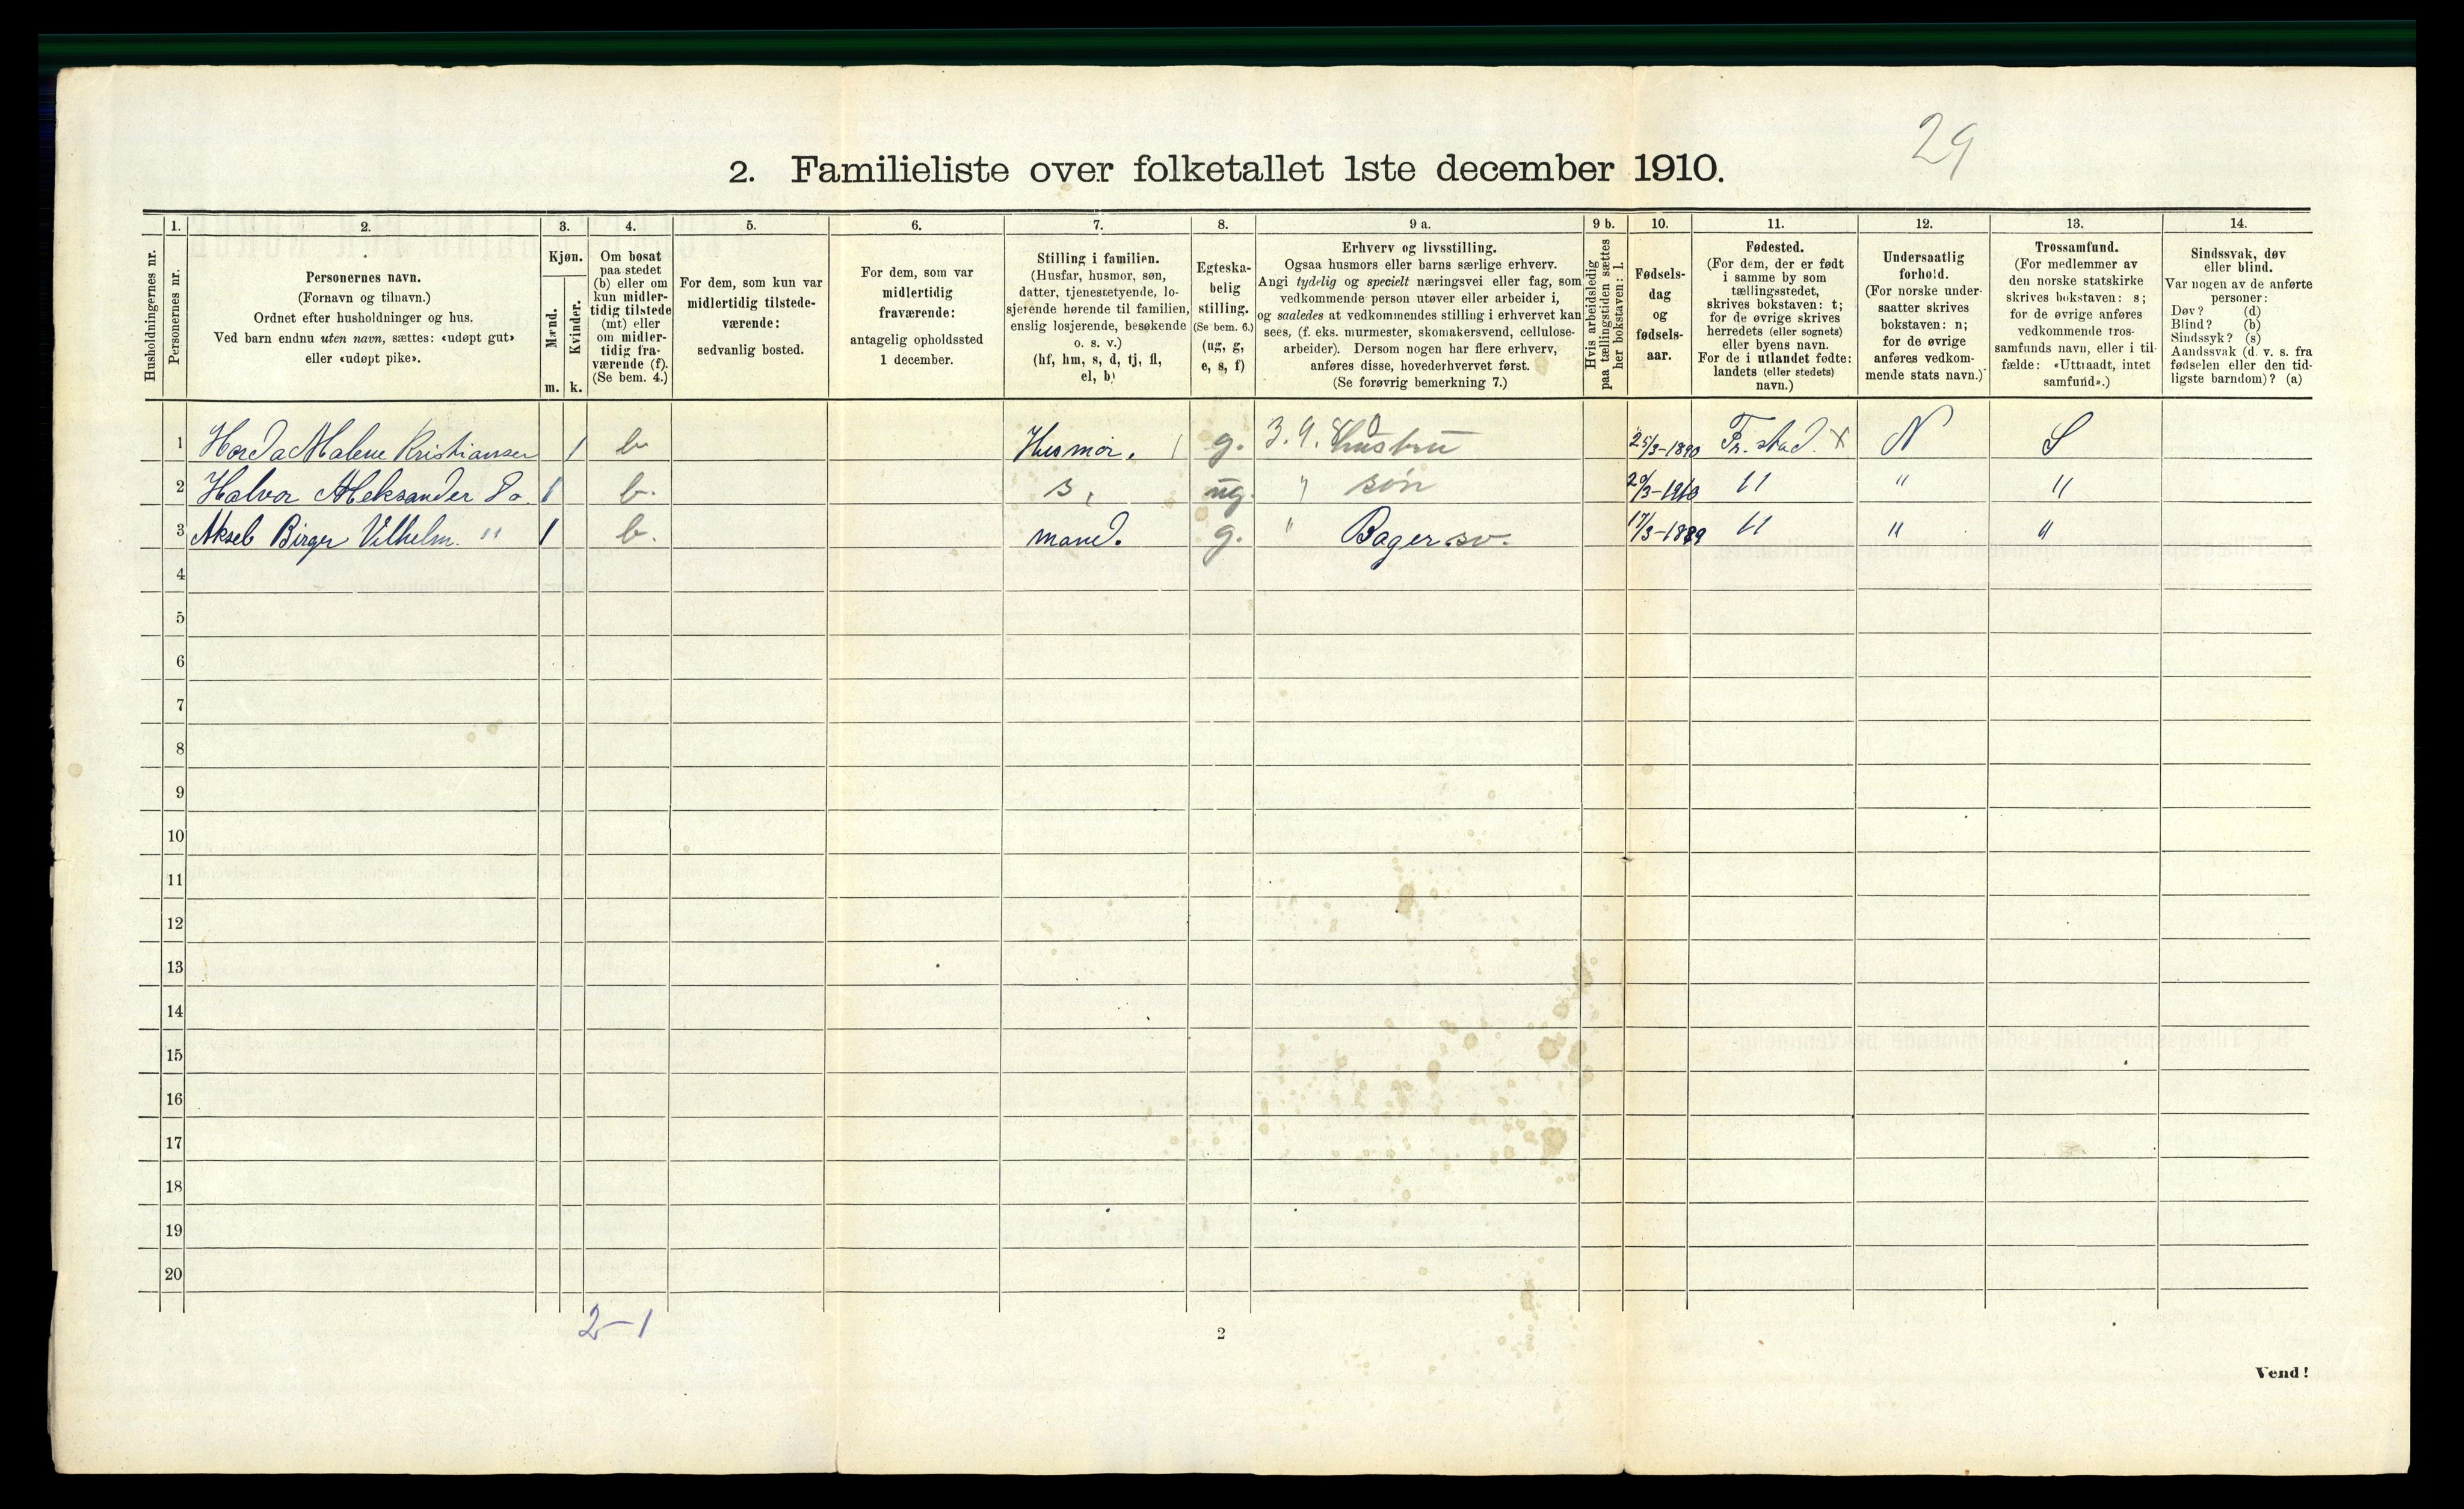 29
2. Familieliste over folketallet 1ste december 1910.
1. 2. 3. 4. 5. 6. 7. 8. 9 a. 9 b. 10. 11. 12. 13. 14.
Husholdningernes nr.
Personernes nr.
Personernes navn.
(Fornavn og tilnavn.)
Ordnet efter husholdninger og hus.
Ved barn endnu uten navn, sættes: «udøpt gut»
eller «udøpt pike».
Kjøn.
Mænd.
Kvinder.
m. k.
Om bosat
paa stedet
(b) eller om
kun midler-
tidig tilstede
(mt) eller
om midler-
tidig fra-
værende (f).
(Se bem. 4.)
For dem, som kun var
midlertidig tilstede-
værende:
sedvanlig bosted.
For dem, som var
midlertidig
fraværende:
antagelig opholdssted
1 december.
Stilling i familien.
(Husfar, husmor, søn,
datter, tjenestetyende, lo-
sjerende hørende til familien,
enslig losjerende, besøkende
o. s. v.)
(hf, hm, s, d, tj, fl,
el, b)
Egteska-
belig
stilling.
(Se bem. 6.)
(ug, g,
e, s, f)
Erhverv og livsstilling.
Ogsaa husmors eller barns særlige erhverv.
Angi tydelig og specielt næringsvei eller fag, som
vedkommende person utøver eller arbeider i,
og saaledes at vedkommendes stilling i erhvervet kan
sees, (f. eks. murmester, skomakersvend, cellulose-
arbeider). Dersom nogen har flere erhverv,
anføres disse, hovederhvervet først.
(Se forøvrig bemerkning 7.)
Hvis arbeidsledig
paa tællingstiden sættes
her bokstaven: l.
Fødsels-
dag
og
fødsels-
aar.
Fødested.
(For dem, der er født
i samme by som
tællingsstedet,
skrives bokstaven: t;
for de øvrige skrives
herredets (eller sognets)
eller byens navn.
For de i utlandet fødte:
landets (eller stedets)
navn.)
Undersaatlig
forhold.
(For norske under-
saatter skrives
bokstaven: n;
for de øvrige
anføres vedkom-
mende stats navn.)
Trossamfund.
(For medlemmer av
den norske statskirke
skrives bokstaven: s;
for de øvrige anføres
vedkommende tros-
samfunds navn, eller i til-
fælde: «Uttraadt, intet
samfund».)
Sindssvak, døv
eller blind.
Var nogen av de anførte
personer:
Døv? (d)
Blind? (b)
Sindssyk? (s)
Aandssvak (d. v. s. fra
fødselen eller den tid-
ligste barndom)? (a)
1 Malene Kristiansen 1 b Husmor. g. Hustru 25/3-1890 Fr. stad. X N S
2 Halvor Aleksander Do. 1 b. s, ug. " søn 3-1910 " " "
3 Aksel Birger Vilhelm. " 1 b. mand. g. " Bager sv. 17/3-1889 " " "
4
5
6
7
8
9
10
11
12
13
14
15
16
17
18
19
20
2-1
2
Vend!